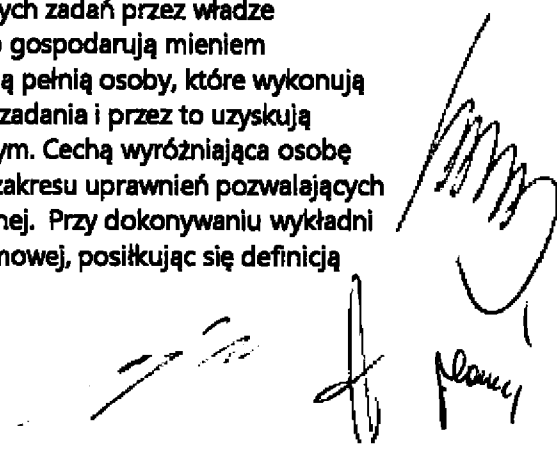 ych zadań przez władze
o gospodarują mieniem
ą pełnią osoby, które wykonują
zadania i przez to uzyskują
ym. Cechą wyróżniająca osobę
zakresu uprawnień pozwalających
nej. Przy dokonywaniu wykładni
nowej, posiłkując się definicją